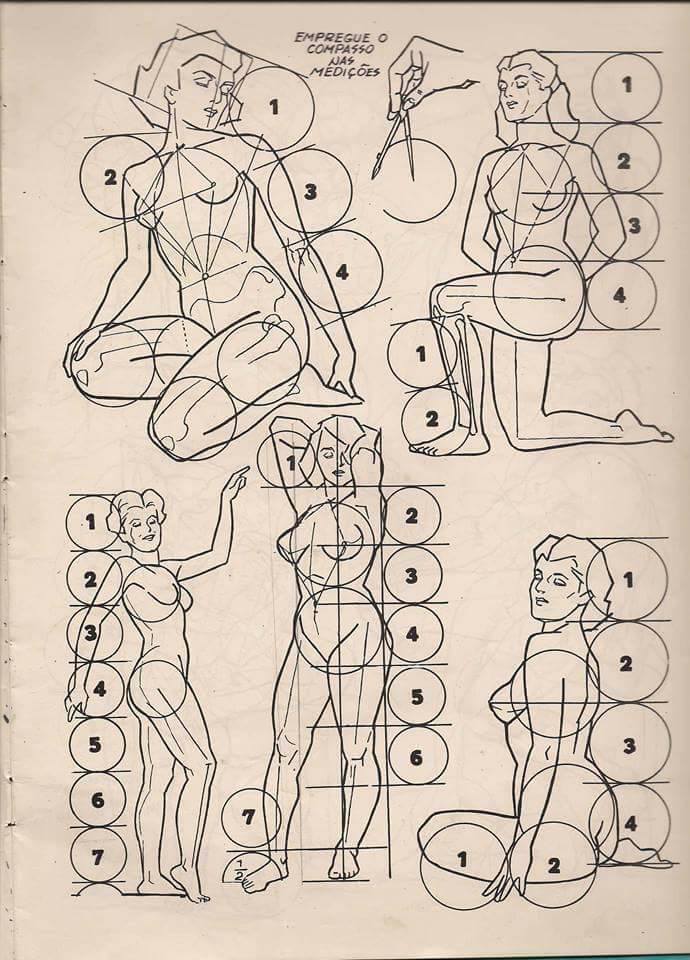 EMPREGUE O
COMPASSO
NAS
MEDIÇÕES
1
2
3
4
1
2
3
4
1
2
1
2
3
4
5
6
7
1
2
3
4
5
6
7
1/2
1
2
3
4
1
2